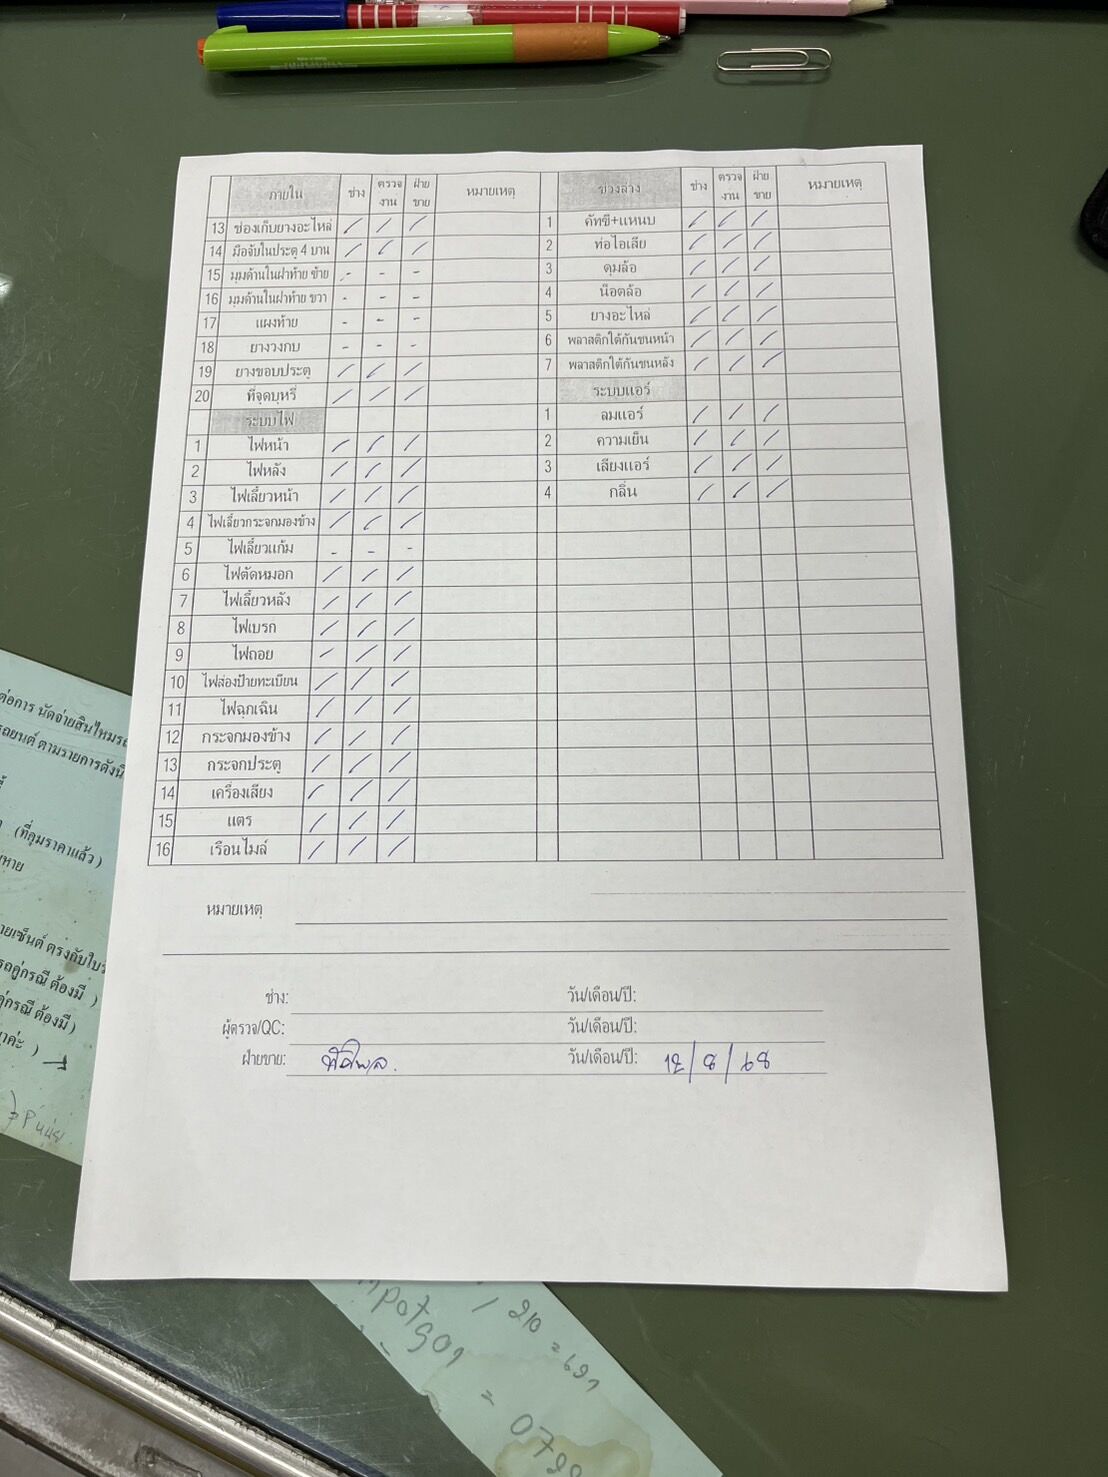 ภายใน ช่าง ตรวจงาน ฝ่ายขาย หมายเหตุ ช่วงล่าง ช่าง ตรวจงาน ฝ่ายขาย หมายเหตุ
13 ช่องเก็บยางอะไหล่ / / / 1 คัทซี+แหนบ / / /
14 มือจับในประตู 4 บาน / / / 2 ท่อไอเสีย / / /
15 มุมด้านในฝาท้าย ซ้าย - - - 3 ดุมล้อ / / /
16 มุมด้านในฝาท้าย ขวา - - - 4 น๊อตล้อ / / /
17 แผงท้าย - - - 5 ยางอะไหล่ / / /
18 ยางวงกบ - - - 6 พลาสติกใต้กันชนหน้า / / /
19 ยางขอบประตู / / / 7 พลาสติกใต้กันชนหลัง / / /
20 ที่จุดบุหรี่ / / / ระบบแอร์
ระบบไฟ 1 ลมแอร์ / / /
1 ไฟหน้า / / / 2 ความเย็น / / /
2 ไฟหลัง / / / 3 เสียงแอร์ / / /
3 ไฟเลี้ยวหน้า / / / 4 กลิ่น / / /
4 ไฟเลี้ยวกระจกมองข้าง / / /
5 ไฟเลี้ยวแก้ม - - -
6 ไฟตัดหมอก / / /
7 ไฟเลี้ยวหลัง / / /
8 ไฟเบรก / / /
9 ไฟถอย / / /
10 ไฟส่องป้ายทะเบียน / / /
11 ไฟฉุกเฉิน / / /
12 กระจกมองข้าง / / /
13 กระจกประตู / / /
14 เครื่องเสียง / / /
15 แตร / / /
16 เรือนไมล์ / / /
หมายเหตุ
ช่าง: วัน/เดือน/ปี:
ผู้ตรวจ/QC: วัน/เดือน/ปี:
ฝ่ายขาย: วัน/เดือน/ปี: 12/8/68
ต่อการ นัดจ่ายสินไหม
รถยนต์ ตามรายการดังนี้
(ที่คุมราคาแล้ว)
ตรงกับใบ
รถคู่กรณี ต้องมี )
คู่กรณี ต้องมี)
าค่ะ )
/ 210 = 691
= 0799